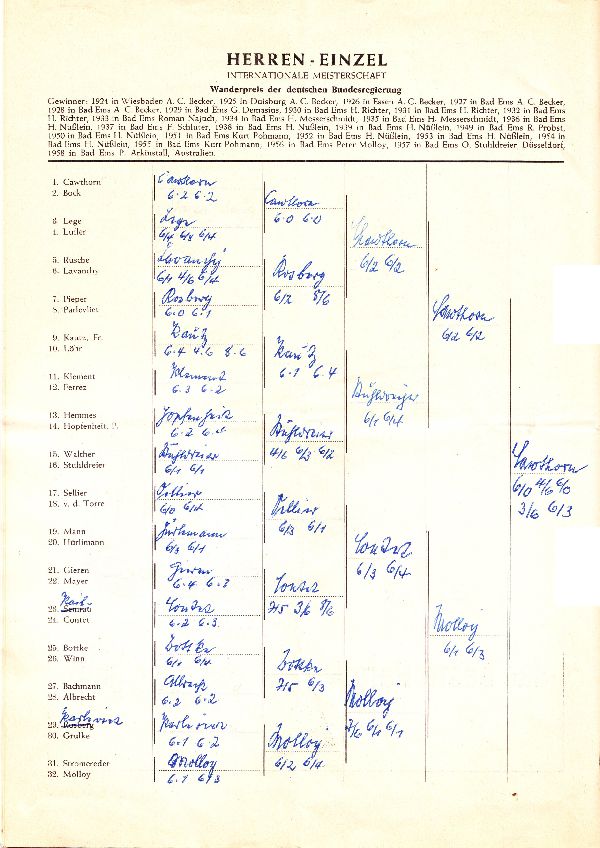 HERREN - EINZEL
INTERNATIONALE MEISTERSCHAFT
Wanderpreis der deutschen Bundesregierung
Gewinner: 1924 in Wiesbaden A. C. Becker, 1925 in Duisburg A. C. Becker, 1926 in Essen A. C. Becker, 1927 in Bad Ems A. C. Becker,
1928 in Bad Ems A. C. Becker, 1929 in Bad Ems G. Demasius, 1930 in Bad Ems H. Richter, 1931 in Bad Ems H. Richter, 1932 in Bad Ems
H. Richter, 1933 in Bad Ems Roman Najuch, 1934 in Bad Ems H. Messerschmidt, 1935 in Bad Ems H. Messerschmidt, 1936 in Bad Ems
H. Nüßlein, 1937 in Bad Ems F. Schlüter, 1938 in Bad Ems H. Nüßlein, 1939 in Bad Ems H. Nüßlein, 1949 in Bad Ems R. Probst,
1950 in Bad Ems H. Nüßlein, 1951 in Bad Ems Kurt Pohmann, 1952 in Bad Ems H. Nüßlein, 1953 in Bad Ems H. Nüßlein, 1954 in
Bad Ems H. Nüßlein, 1955 in Bad Ems Kurt Pohmann, 1956 in Bad Ems Peter Molloy, 1957 in Bad Ems O. Stuhldreier Düsseldorf,
1958 in Bad Ems P. Arkinstall, Australien.
1. Cawthorn Cawthorn
2. Bock 6-2 6-2
Cawthorn
6-0 6-0
3. Lege Lege
4. Luiler 6/4 6/4
Cawthorn
6/2 6/2
5. Rusche
6. Lavanchy Lavanchy
6/1 4/6 6/4
Rosberg
6/2 8/6
7. Pieper Rosberg
8. Parlevliet 6-0 6-1
Cawthorn
6/2 6/2
9. Kautz, Fr. Kautz
10. Löhr 6-4 4-6 8-6
Kautz
6-1 6-4
11. Klement Klement
12. Ferrez 6-3 6-2
6/1 6/4
13. Hemmes Hopfenheit
14. Hopfenheit, P. 6-2
4/6 6/3 6/2
15. Walther
16. Stuhldreier 6/1 6/1
Cawthorn
6/0 4/6 6/0
3/6 6/3
17. Sellier Sellier
18. v. d. Torre 6/0 6/4
Sellier
6/3 6/1
19. Mann Hürlimann
20. Hürlimann 6/3 6/1
Contet
6/3 6/4
21. Gieren
22. Mayer 6-4 6-3
Contet
7/5 3/6 8/6
23.
24. Contet Contet
6-2 6-3
Molloy
6/1 6/3
25. Bottke Bottke
26. Winn 6/1 6/4
Bottke
7/5 6/3
27. Bachmann Albrecht
28. Albrecht 6-2 6-2
Molloy
7/6 6/1 6/1
29. Rosberg
30. Grulke 6-1 6-2
Molloy
6/2 6/4
31. Stromereder Molloy
32. Molloy 6-1 6/3